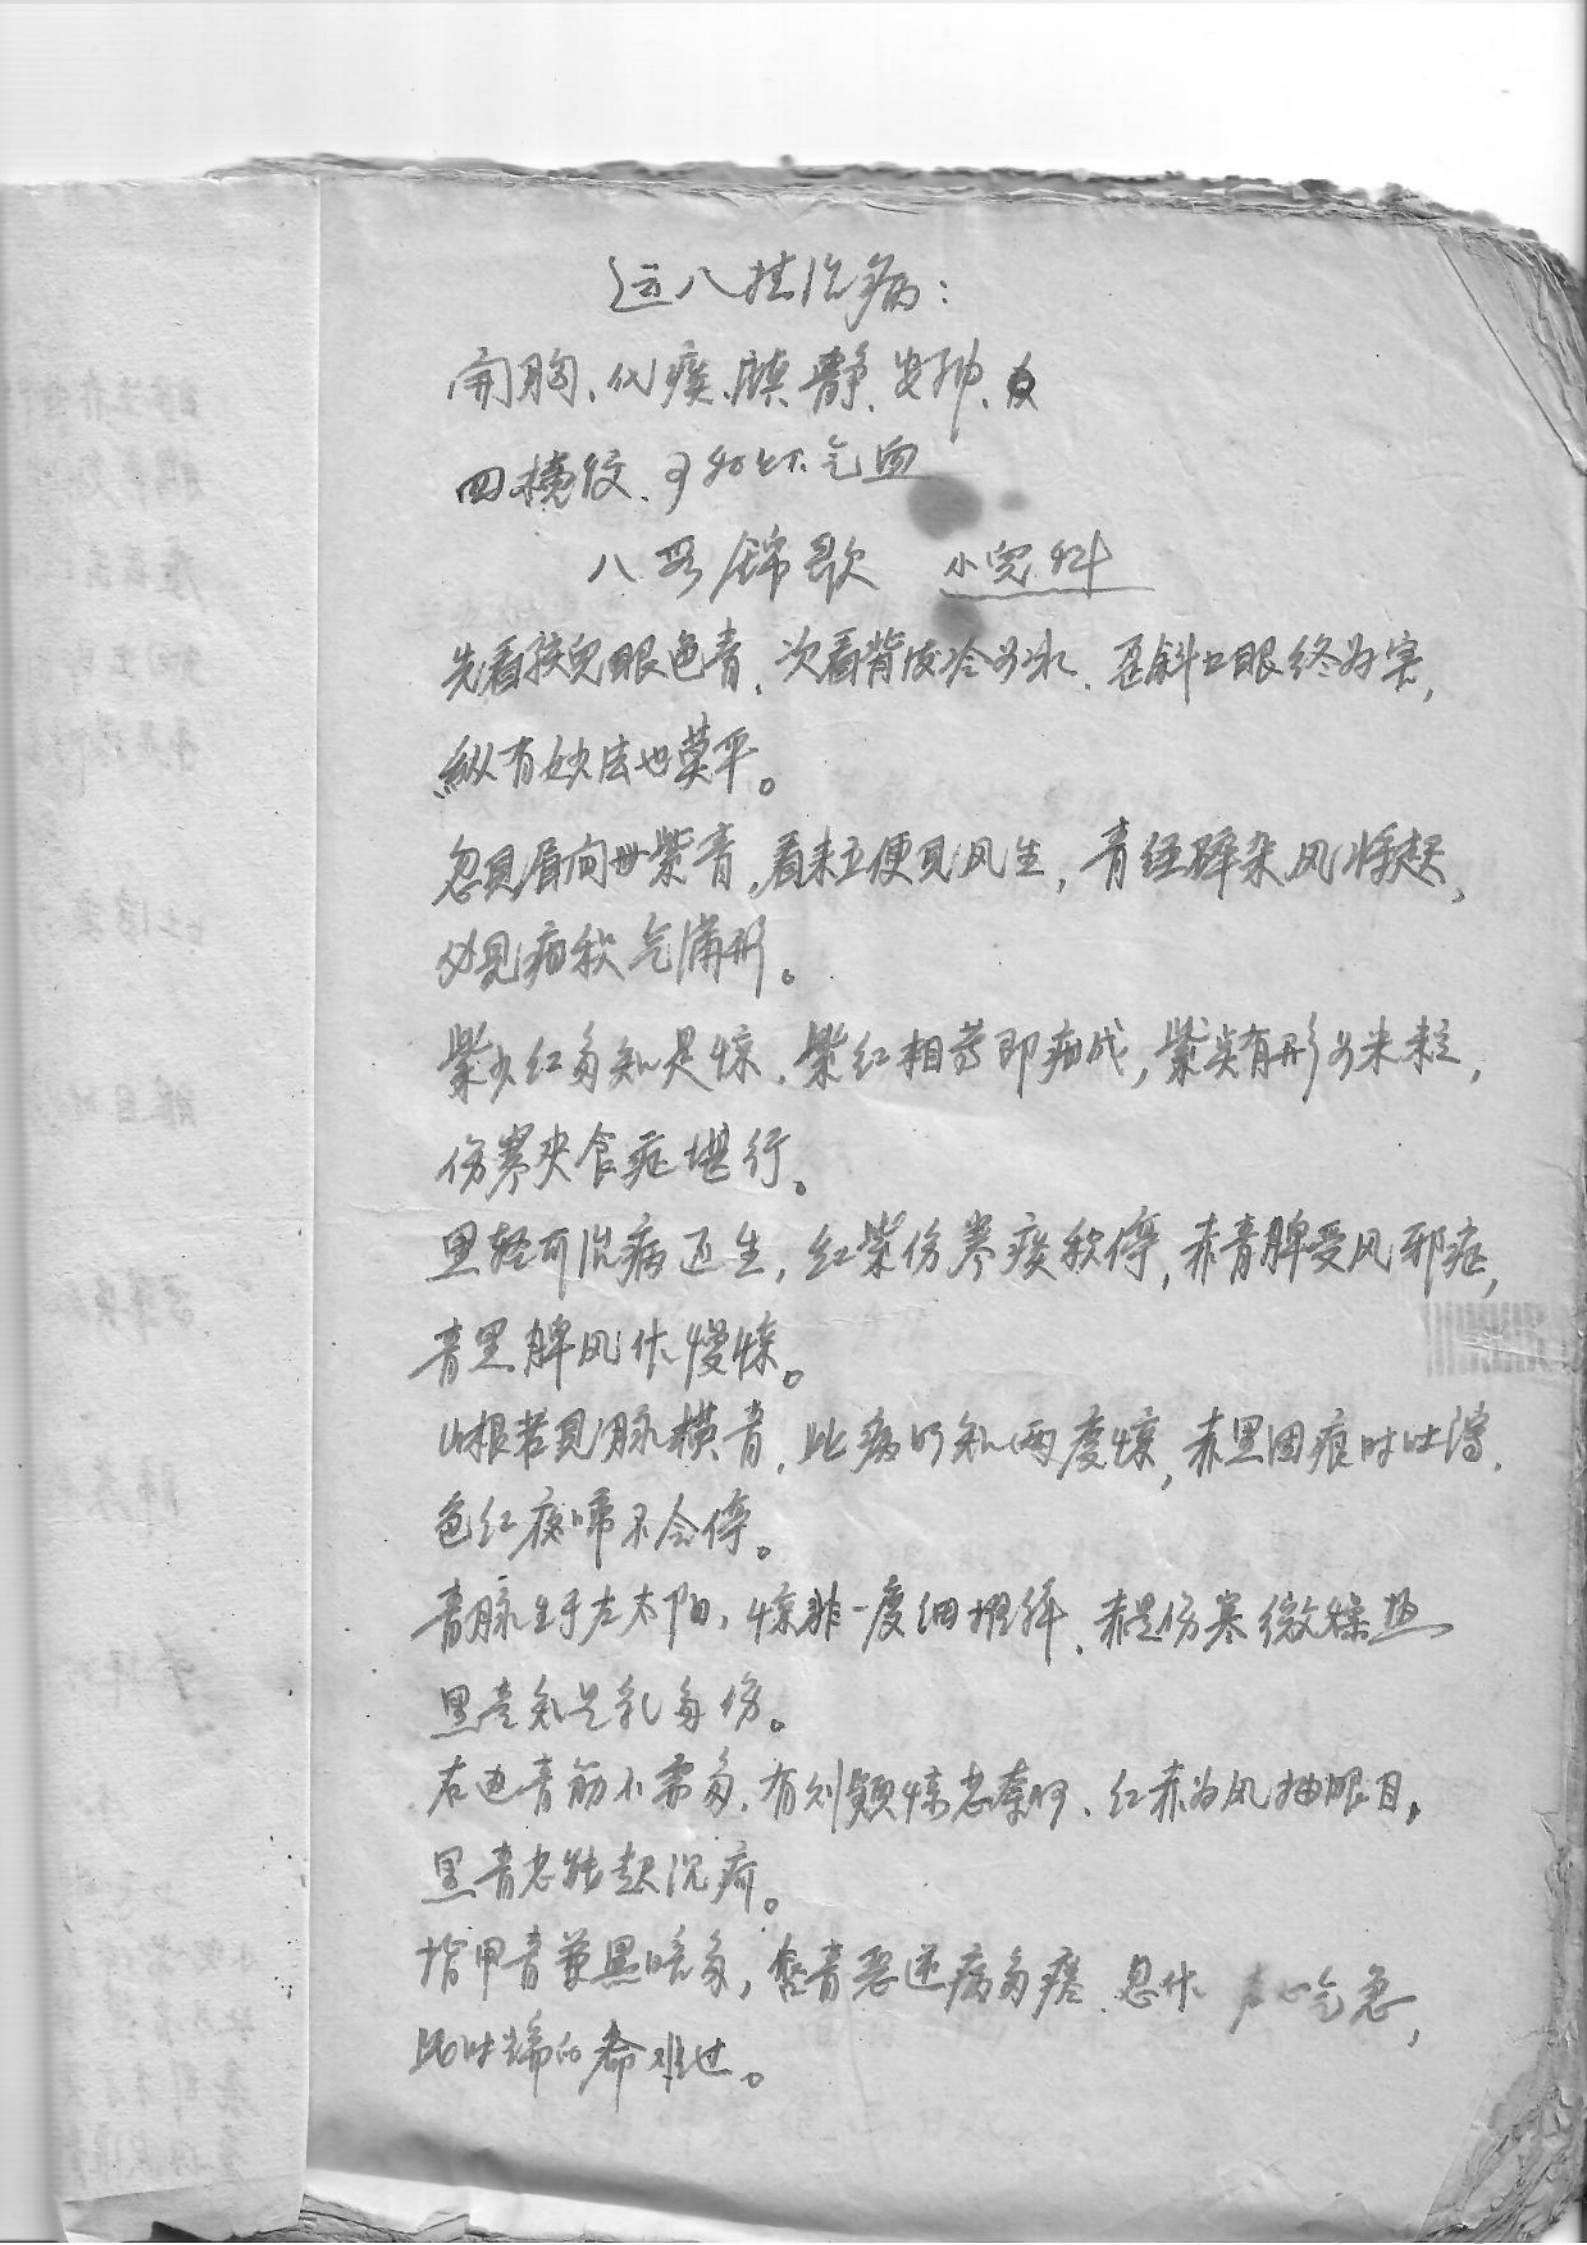 运八挂治病：
开胸、化痰、镇静、安神、及
四横纹、可和上下气血
八段锦歌 小儿科
先看孩儿眼色青、次看背皮冷如冰、歪斜口眼终为害，
纵有妙法也莫平。
忽见眉间世紫青，看来立便见风生，青经碎杂风将起，
必见疳积气满形。
紫少红多知是惊、紫红相等即疳成，紫点有形如米粒，
伤寒夹食症堪行。
黑轻可治病返生，红紫伤寒痰积停，赤青脾受风邪症，
青黑脾风作慢惊。
山根若见脉横青，此病明知两度惊，赤黑困疲时吐泻、
色红夜啼不会停。
青脉生于左太阳，惊非一度细推详、赤是伤寒微燥热
黑青知是乳多伤。
右边青筋不需多、有则频惊怎奈何、红赤为风抽眼目，
黑青怎能起沉疴。
指甲青兼黑暗多，唇青恶逆病多瘥、忽作 声心气急，
此时端的命难过。